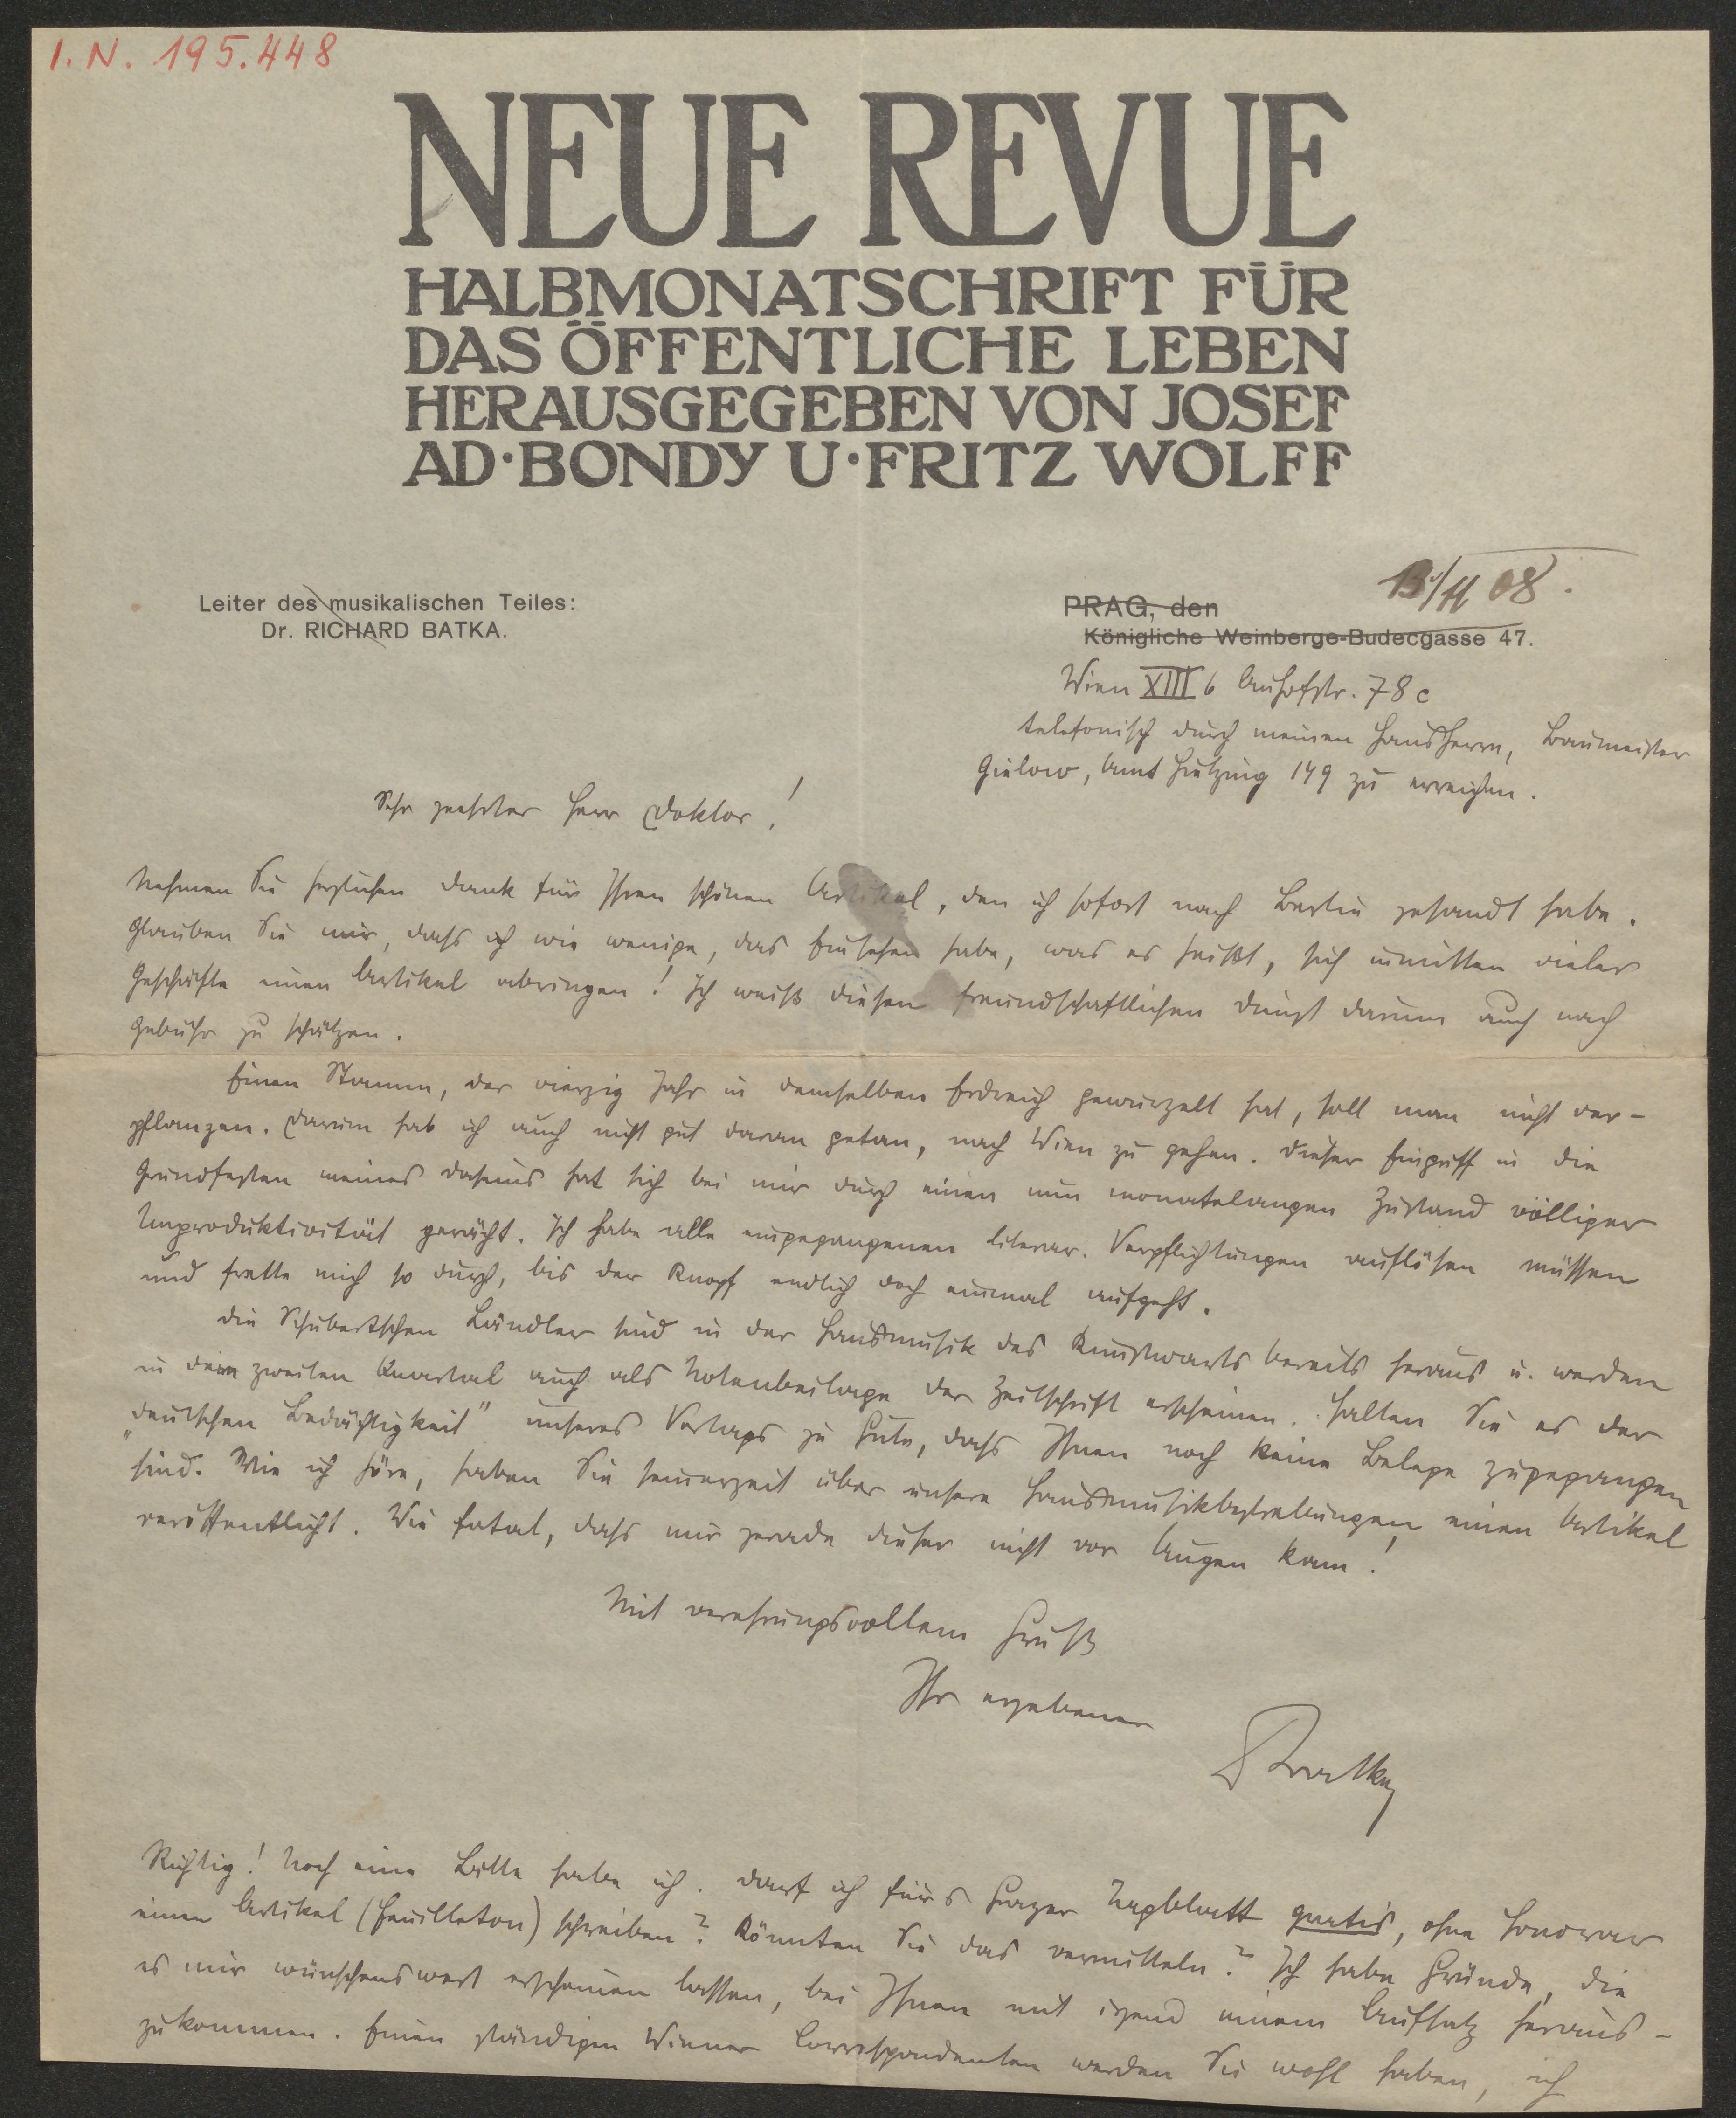 I.N. 195.448
NEUE REVUE
HALBMONATSCHRIFT FÜR
DAS ÖFFENTLICHE LEBEN
HERAUSGEGEBEN VON JOSEF
AD·BONDY U·FRITZ WOLFF
Leiter des musikalischen Teiles:
Dr. RICHARD BATKA.
13/11 08.
PRAG, den
Königliche Weinberge-Budecgasse 47.
Wien XIII 6 Auhofstr. 78c
telefonisch durch meinen Hausherrn, Baumeister
Gielow, Amt Hietzing 149 zu erreichen.
Sehr geehrter Herr Doktor!
Nehmen Sie herzlichen Dank für Ihren schönen Artikel, den ich sofort nach Berlin gesandt habe.
Glauben Sie mir, dass ich wie wenige, das Einsehen habe, was es heißt, sich inmitten vieler
Geschäfte einen Artikel abringen! Ich weiß diesen freundschaftlichen Dienst darum auch nach
Gebühr zu schätzen.
Einen Stamm, der vierzig Jahr in demselben Erdreich gewurzelt hat, soll man nicht ver-
pflanzen. Darum hab ich auch nicht gut daran getan, nach Wien zu gehen. Dieser Eingriff in die
Grundfesten meines Daseins hat sich bei mir durch einen nun monatelangen Zustand völliger
Unproduktivität gerächt. Ich habe alle eingegangenen literar. Verpflichtungen auflösen müssen
und frette mich so durch, bis der Knopf endlich doch einmal aufgeht.
Die Schubertschen Ländler sind in der Hausmusik des Kunstwarts bereits heraus u. werden
in dem zweiten Quartal auch als Notenbeilage der Zeitschrift erscheinen. Halten Sie es der
„deutschen Bedächtigkeit" unseres Verlags zu Gute, dass Ihnen noch keine Belege zugegangen
sind. Wie ich höre, haben Sie seinerzeit über unsere Hausmusikbestrebungen einen Artikel
veröffentlicht. Wie fatal, dass mir gerade dieser nicht vor Augen kam!
Mit verehrungsvollem Gruß
Ihr ergebener
RBatka
Richtig! Noch eine Bitte habe ich. Darf ich fürs Grazer Tagblatt gratis, ohne Honorar
einen Artikel (Feuilleton) schreiben? Könnten Sie das vermitteln? Ich habe Gründe, die
es mir wünschenswert erscheinen lassen, bei Ihnen mit irgend einem Aufsatz heraus-
zukommen. Einen ständigen Wiener Correspondenten werden Sie wohl haben, ich